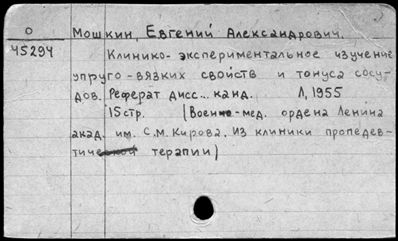 О Мошкин, Евгений Александрович.
45294 Клинико-экспериментальное изучение
упруго-вязких свойств и тонуса сосу-
дов. Реферат дисс... канд. Л, 1955
15 стр. (Воен-мед. ордена Ленина
акад. им. С.М. Кирова. Из клиники пропедев-
тической терапии)